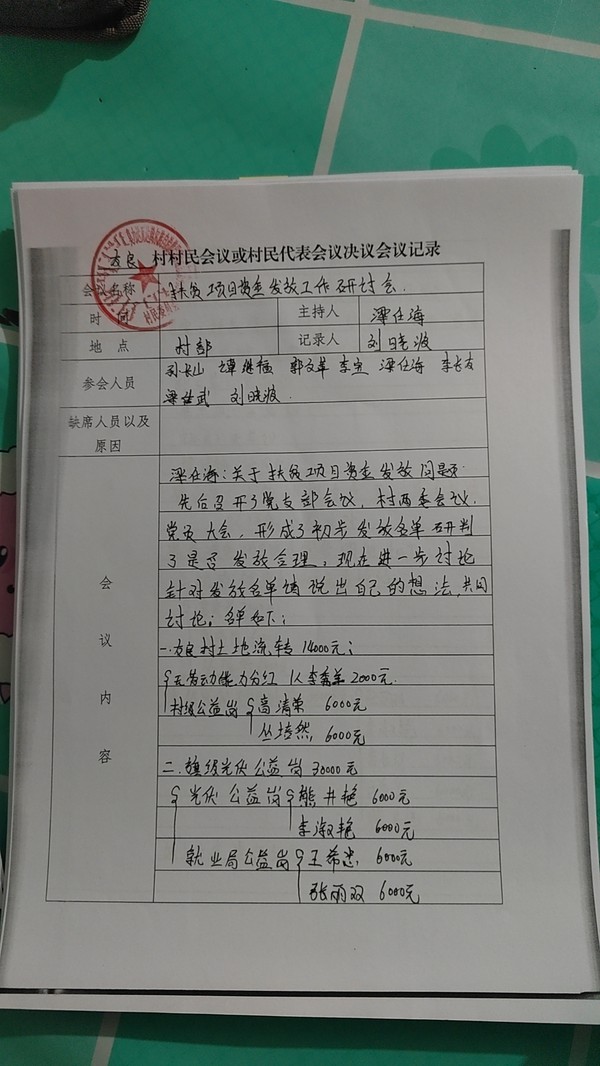 方良 村村民会议或村民代表会议决议会议记录
会议名称 扶贫项目资金发放工作研讨会.
时 间 主持人 梁任海
地 点 村部 记录人 刘晓波
参会人员 孙长山 谭继福 郭文革 李宝 梁任海 李长友
梁世武 刘晓波.
缺席人员以及
原因
会议内容
梁任海:关于扶贫项目资金发放问题.
先后召开了党支部会议,村两委会议.
党员大会,形成了初步发放名单研判
了是否发放合理,现在进一步讨论
针对发放名单请说出自己的想法,共同
讨论;名单如下:
一.方良村土地流转14000元;
无劳动能力分红 2000元.
村级公益岗 高清荣 6000元
丛培然, 6000元
二.旗级光伏公益岗30000元
光伏公益岗 熊井艳 6000元
李淑艳 6000元
就业局公益岗 王希 6000元
张丽双 6000元